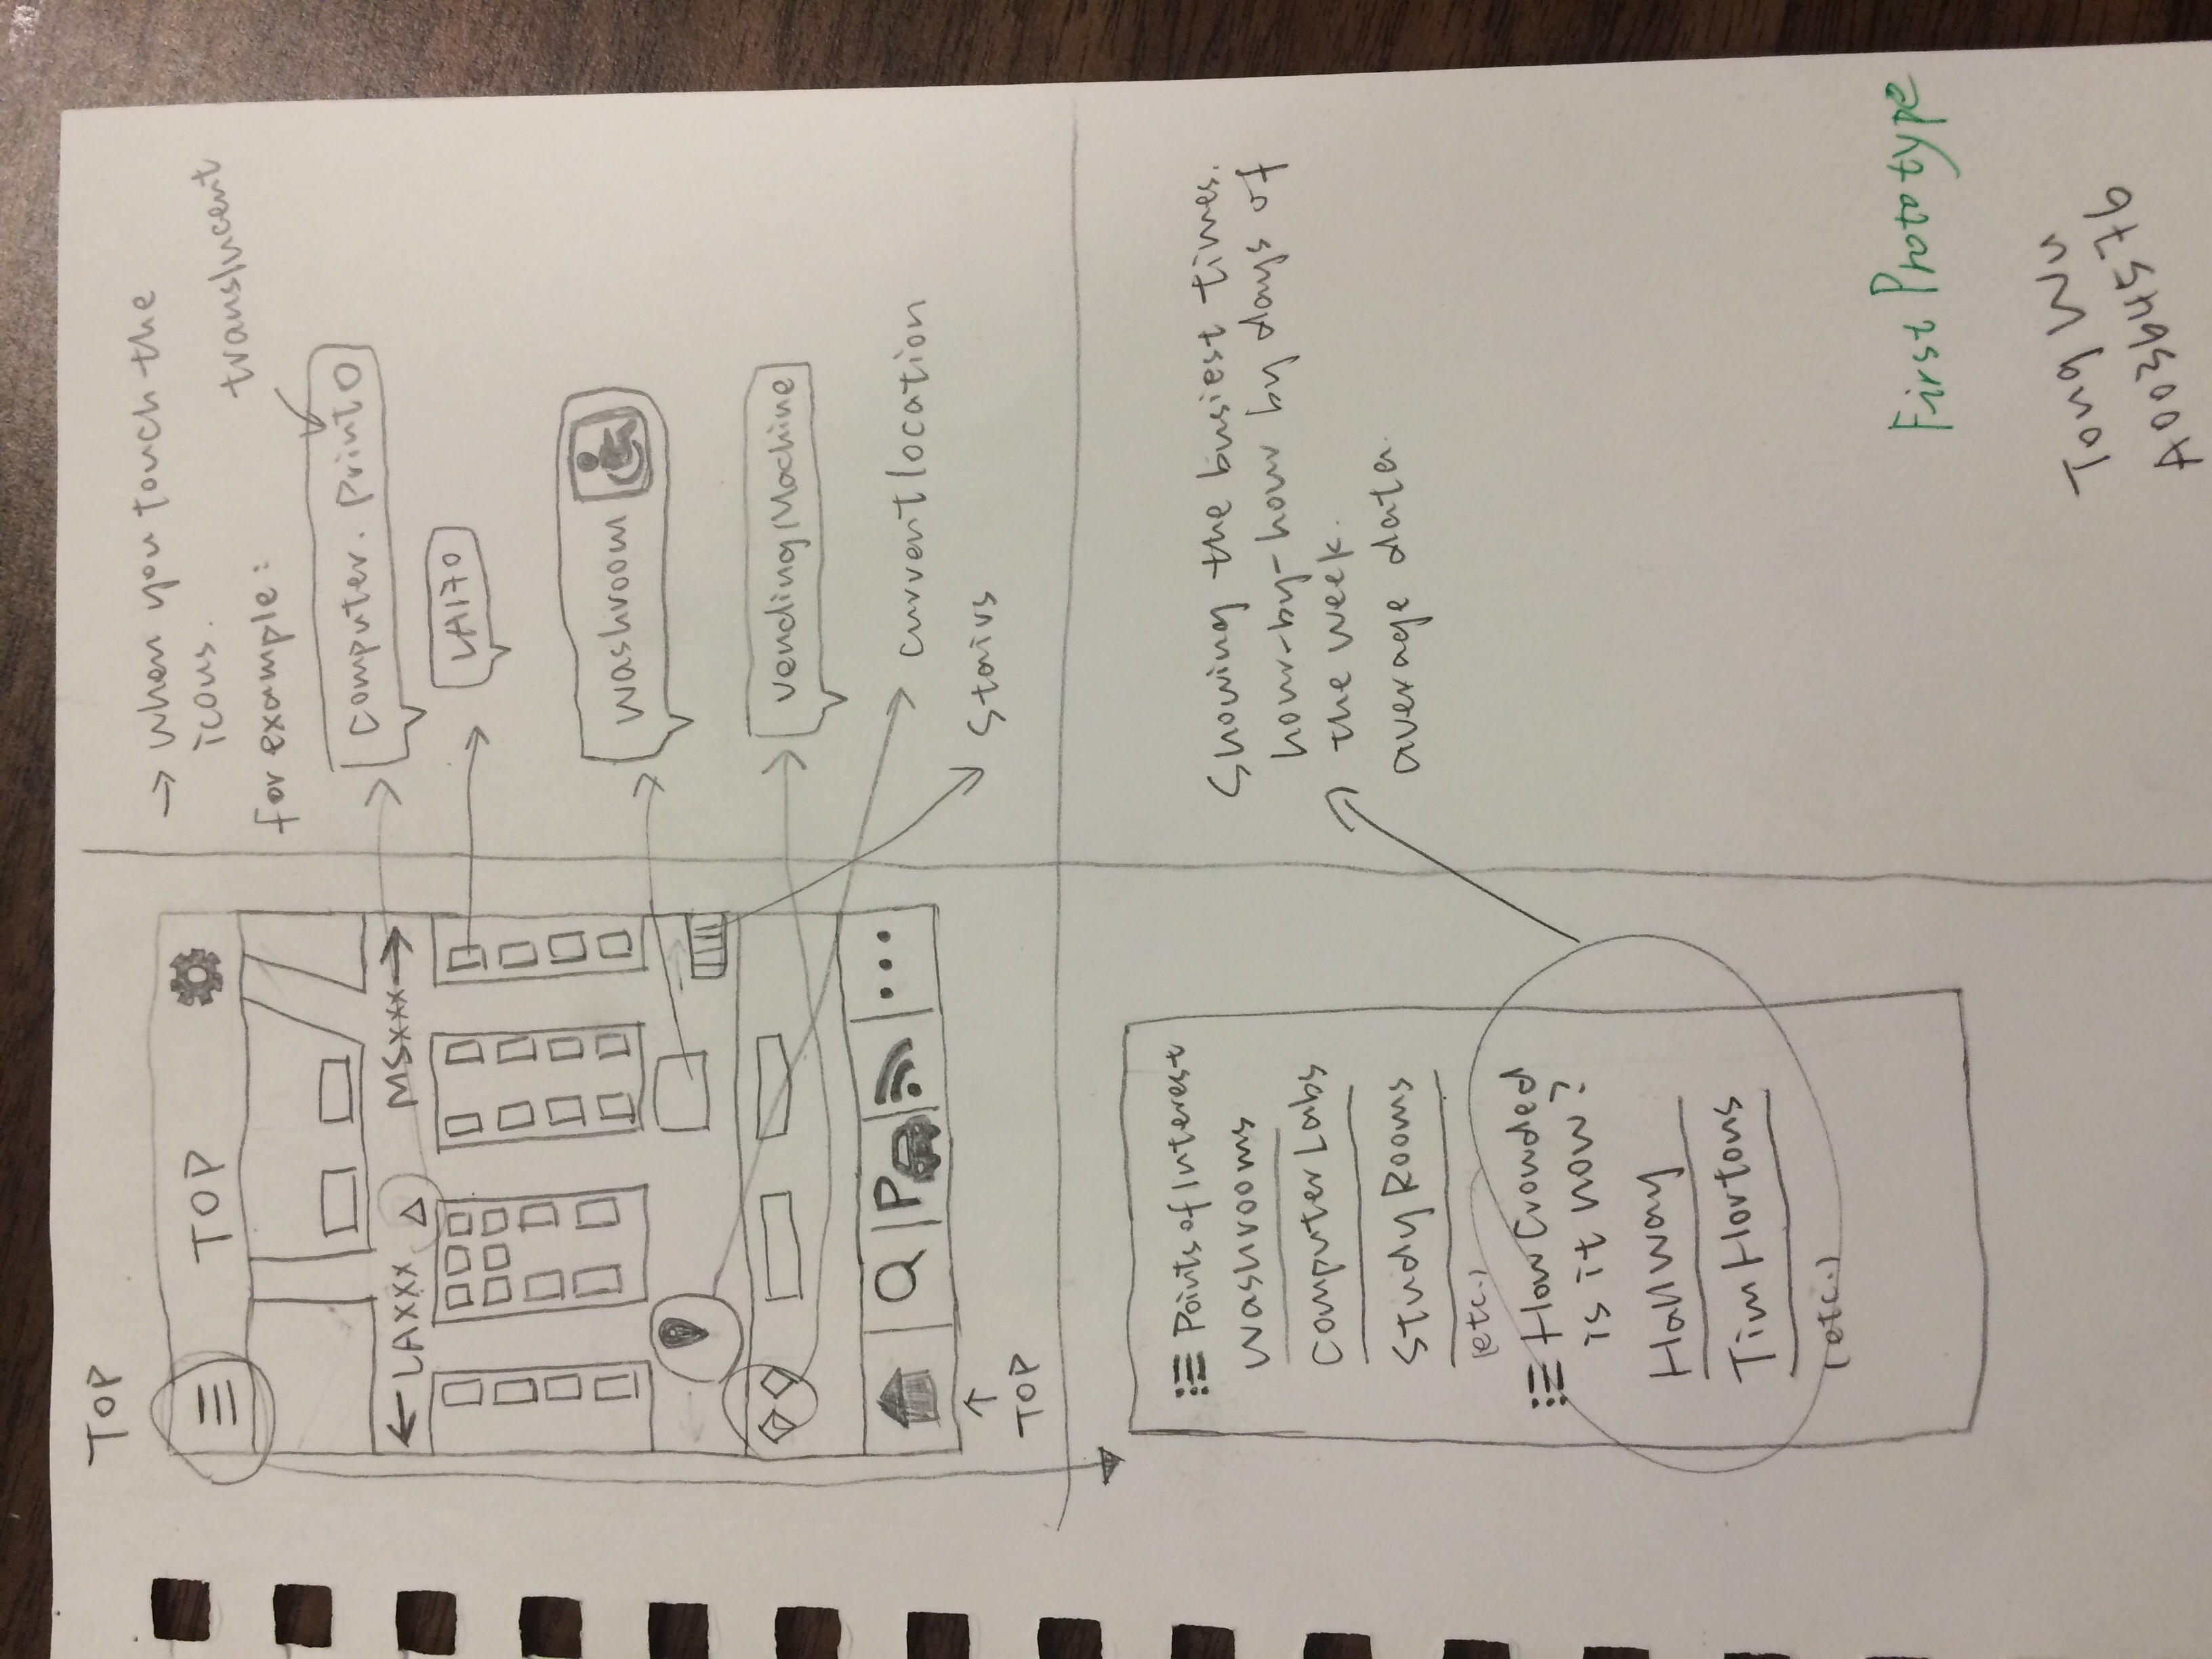 TOP
TOP
← LAXXX △ MSXXX →
P
...
↑
TOP
→ when you touch the
icons.
translucent
for example:
Computer. Print O
LA170
Washroom
Vending Machine
current location
Stairs
Points of Interest
Washrooms
Computer Labs
Study Rooms
(etc.)
How Crowded
is it now?
Hallway
Tim Hortons
(etc.)
Showing the busiest times.
hour-by-hour by days of
the week.
average data.
First Prototype
Tong Wu
A00364576